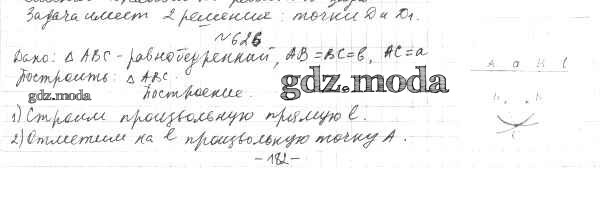 Задача имеет 2 решение: точки D и D₁.
№626
Дано: △ ABC - равнобедренный, AB=BC=b, AC=a
Построить: △ ABC.
gdz.moda
gdz.moda
Построение.
1) Строим произвольную прямую l.
2) Отметим на l произвольную точку A.
-182-
A a B l